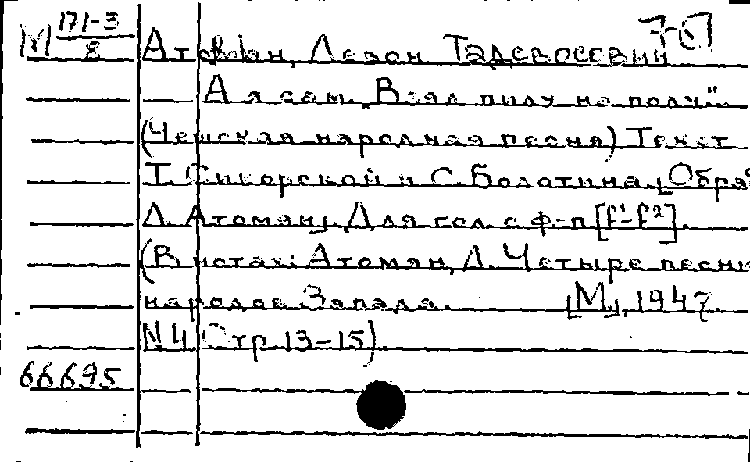 М 171-3/8
70
Атовмян, Левон Тадевосович
А я сам. "Взял пилу на полу".
(Чешская народная песня) Текст
Т. Сикорской и С. Болотина. [Обра
Л. Атовмян]. Для гол. с ф-п [f¹-f²].
(В нотах: Атовмян, Л. Четыре песни
народов Запада. [М.], 1947
N 4 Стр. 13-15)
66695